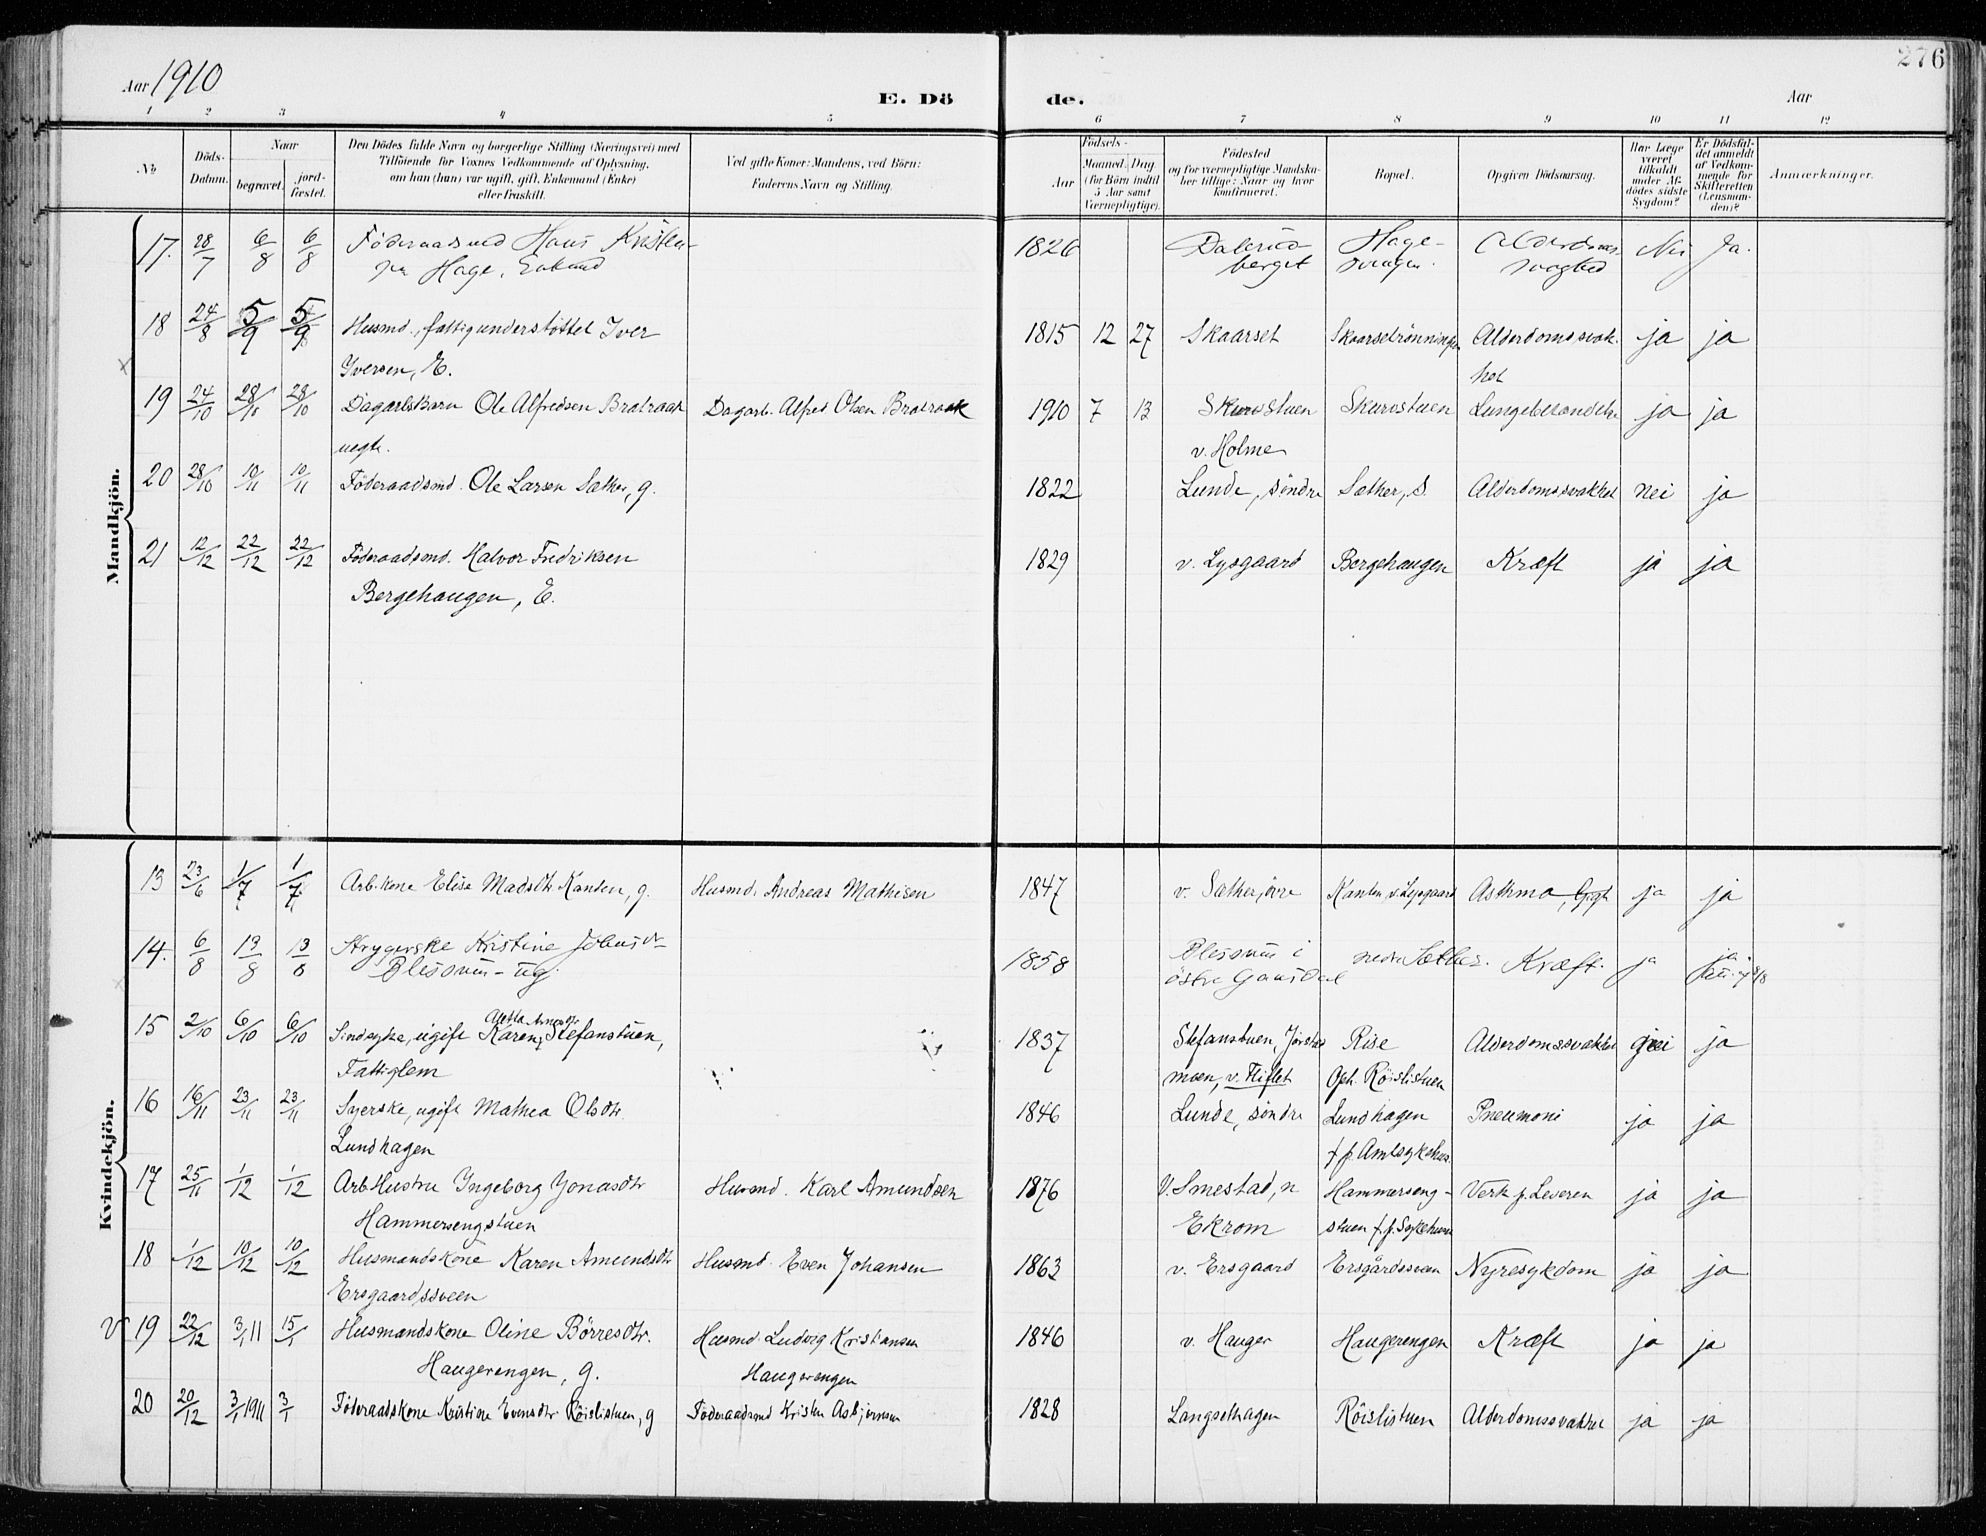 276
Aar 1910
E. Dö
de.
Aar
1 2 3 4 5 6 7 8 9 10 11 12
No
Döds-
Datum.
Naar
begravet.
jord-
fæstet.
Den Dödes fulde Navn og borgerlige Stilling (Næringsvei) med
Tilföiende for Voxnes Vedkommende af Oplysning,
om han (hun) var ugift, gift, Enkemand (Enke)
eller fraskilt.
Ved gifte Koner: Mandens, ved Börn:
Faderens Navn og Stilling.
Födsels-
Aar
Maaned.
Dag
(for Börn indtil
5 Aar samt
Værnepligtige).
Födested
og for værnepligtige Mandska-
ber tillige: Naar og hvor
konfirmeret.
Bopæl.
Opgiven Dödsaarsag.
Har Læge
været
tilkaldt
under Af-
dödes sidste
Sygdom?
Er Dödsfal-
det anmeldt
af Vedkom-
mende for
Skifteretten
(Lensman-
den)?
Anmærkninger.
Mandkjön.
17. 28/7 6/8 6/8 Föderaadsmd Hans Kristen- 1826 Hage- Alderdoms- Nei Ja.
Hage, Enkmd berget svangen. svaghed
18 24/8 5/9 5/9 Husmd., fattigunderstöttet Iver 1815 12 27 Skaarset Skaarsetrönningen Alderdomssvak- ja ja
Iversen, E. het
19 24/10 28/10 28/10 Dagarb.barn Ole Alfredsen Bratraak Dagarb. Alfred Olsen Bratraak 1910 7 13 Skurvstuen Skurvstuen Lungebetændelse ja ja
uegte. v. Holme
20 28/10 10/11 10/11 Föderaadsmd. Ole Larsen Sæther, g. 1822 Lunde, söndre Sæther, S. Alderdomssvakhet nei ja
21 12/12 22/12 22/12 Föderaadsmd. Halvor Fredriksen 1829 v. Lysgaard Bergehaugen Kræft ja ja
Bergehaugen, E.
Kvindekjön.
13 23/6 1/7 1/7 Arb.kone Elise Madsdtr Kanten, g. Husmd. Andreas Mathisen 1847 v. Sæther, övre Kanten, v. Lysgaard Asthma, Gigt ja ja
14. 6/8 13/8 13/8 Strygerske Kristine Johnsdtr 1858 Blessum i nedre Sæther. Kræft. ja ja
Blessum - ug. östre Gausdal
15 2/10 6/10 6/10 Sindsyke, ugift Karen Stefanstuen, 1837 Stefanstuen, Jörstad Rise Alderdomssvakhet nei ja
Fattiglem moen, v. Fliflet Oph. Röislistuen
16 16/11 23/11 23/11 Syerske, ugift Mathea Olsdtr. 1846 Lunde, söndre Lundhagen Pneumoni ja ja
Lundhagen f. p. Amtsykehus.
17 25/11 1/12 1/12 Arb.Hustru Ingeborg Jonasdtr Husmd. Karl Amundsen 1876 V. Smestad, n Hammerseng- Verk p. Leveren ja ja
Hammersengstuen Ekrom stuen f. p. Sykehuset
18 1/12 10/12 10/12 Husmandskone Karen Amundsdtr Husmd. Even Johansen 1863 v. Ersgaard Ersgårdssveen Nyresykdom ja ja
Ersgaardssveen
V 19 22/12 3/1 11 15/1 Husmandskone Oline Börresdtr. Husmd. Ludvig Kristiansen 1846 v. Hauger Haugerengen Kræft ja ja
Haugerengen, g. Haugerengen
20 20/12 3/1 1911 3/1 Föderaadskone Kristine Evensdtr Röislistuen, g Föderaadsmd Kristen Asbjörnsen 1828 Langsethagen Röislistuen Alderdomssvakhet ja ja